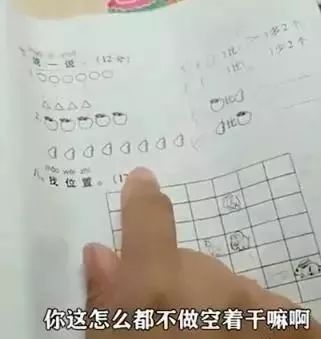 说一说。(12分)
1.
( )比( )多2个
( )比( )少2个
2.
比
比
zhǎo wèi zhi
八、找位置。(1
你这怎么都不做空着干嘛啊